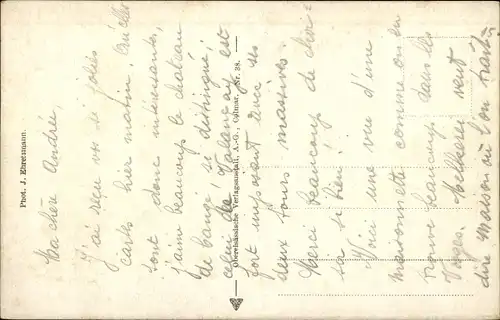 Phot. J. Ehretsmann.
Ma chère Andrée,
J'ai reçu vos si jolies
cartes hier matin, qu'elles
sont donc intéressantes,
j'aime beaucoup le château
de si distingué,
celui de Valençay est
fort imposant avec ses
deux tours massives.
Merci beaucoup de choi-
sir si bien!
Voici une vue d'une
maisonnette comme on en
trouve beaucoup dans les
Vosges. Melkerei veut
dire Maison où l'on trait
Oberelsässische Verlagsanstalt, A.-G., Colmar. Nr. 38.